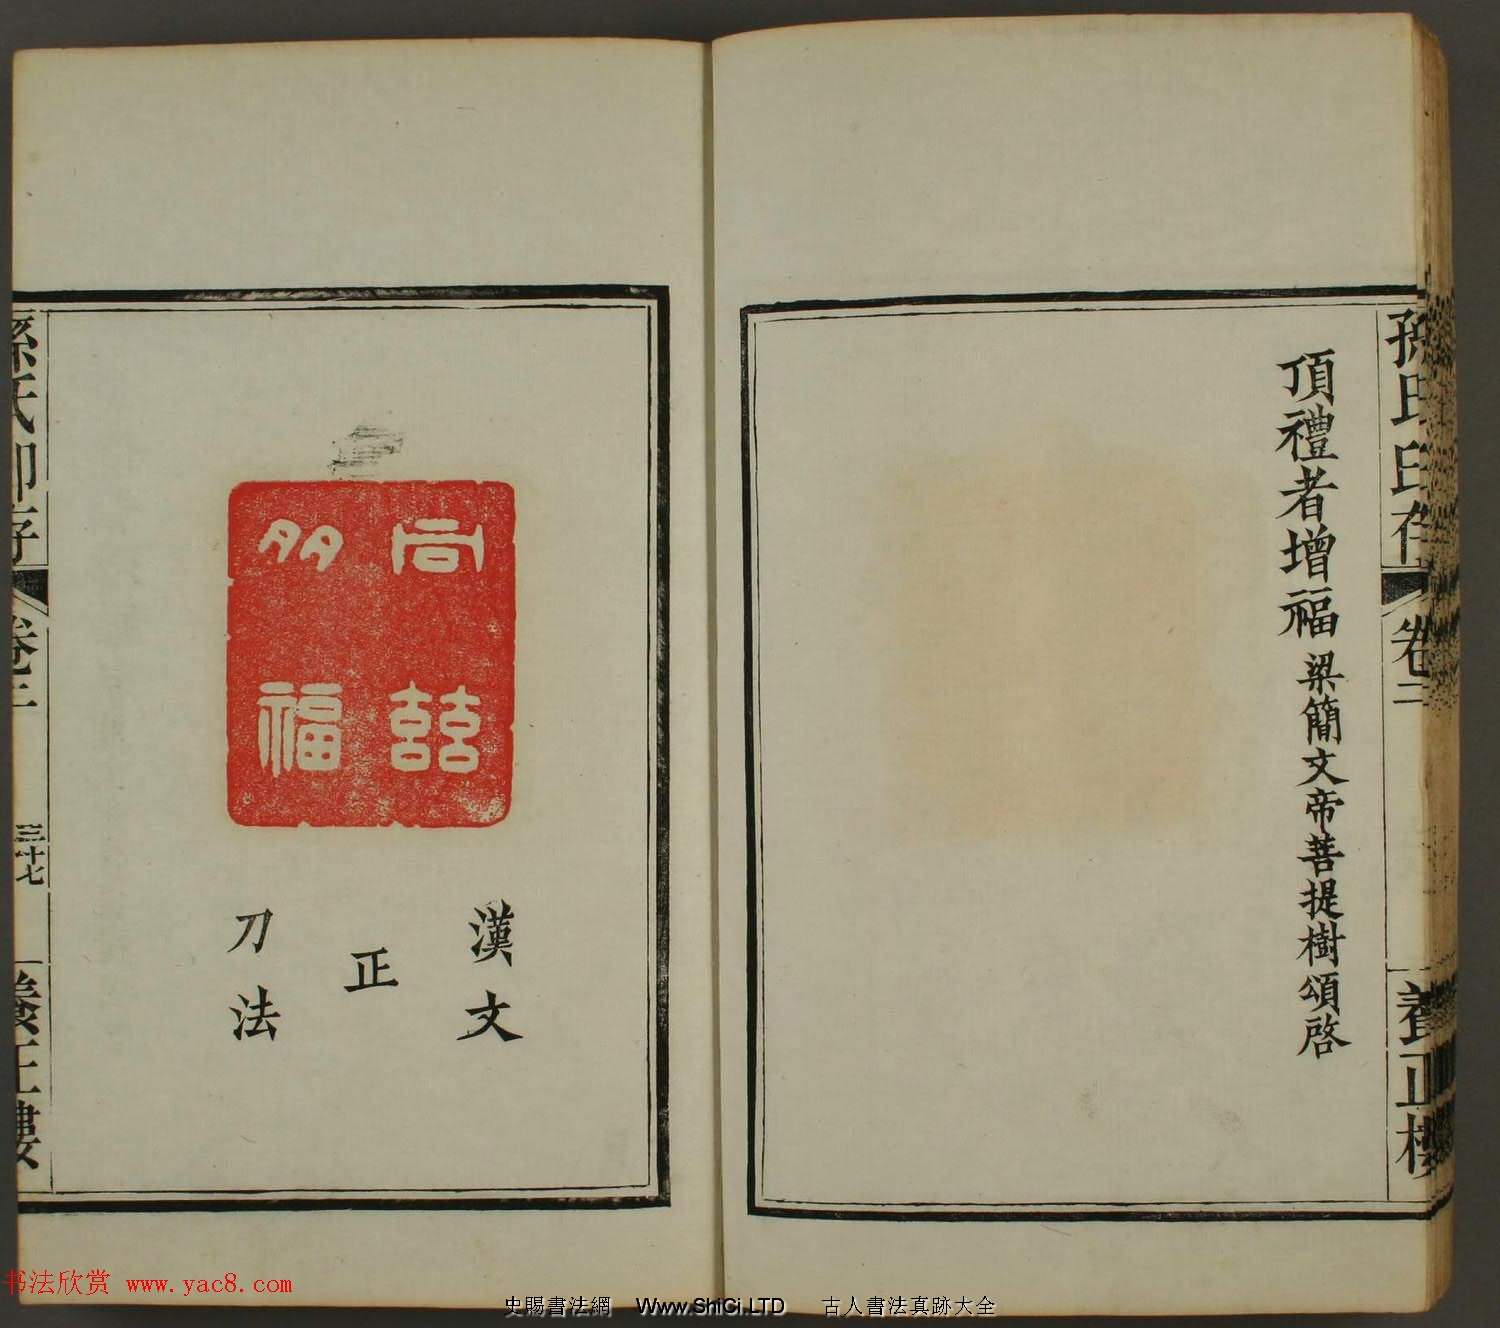 孫氏印存
卷二
養正樓
頂禮者增福 梁簡文帝菩提樹頌啓
向喆
多福
漢文
正
刀法
孫氏印存
卷二
三十七
養正樓
书法欣赏 www.yac8.com
史賜書法網 Www.ShiCi.LTD 古人書法真跡大全